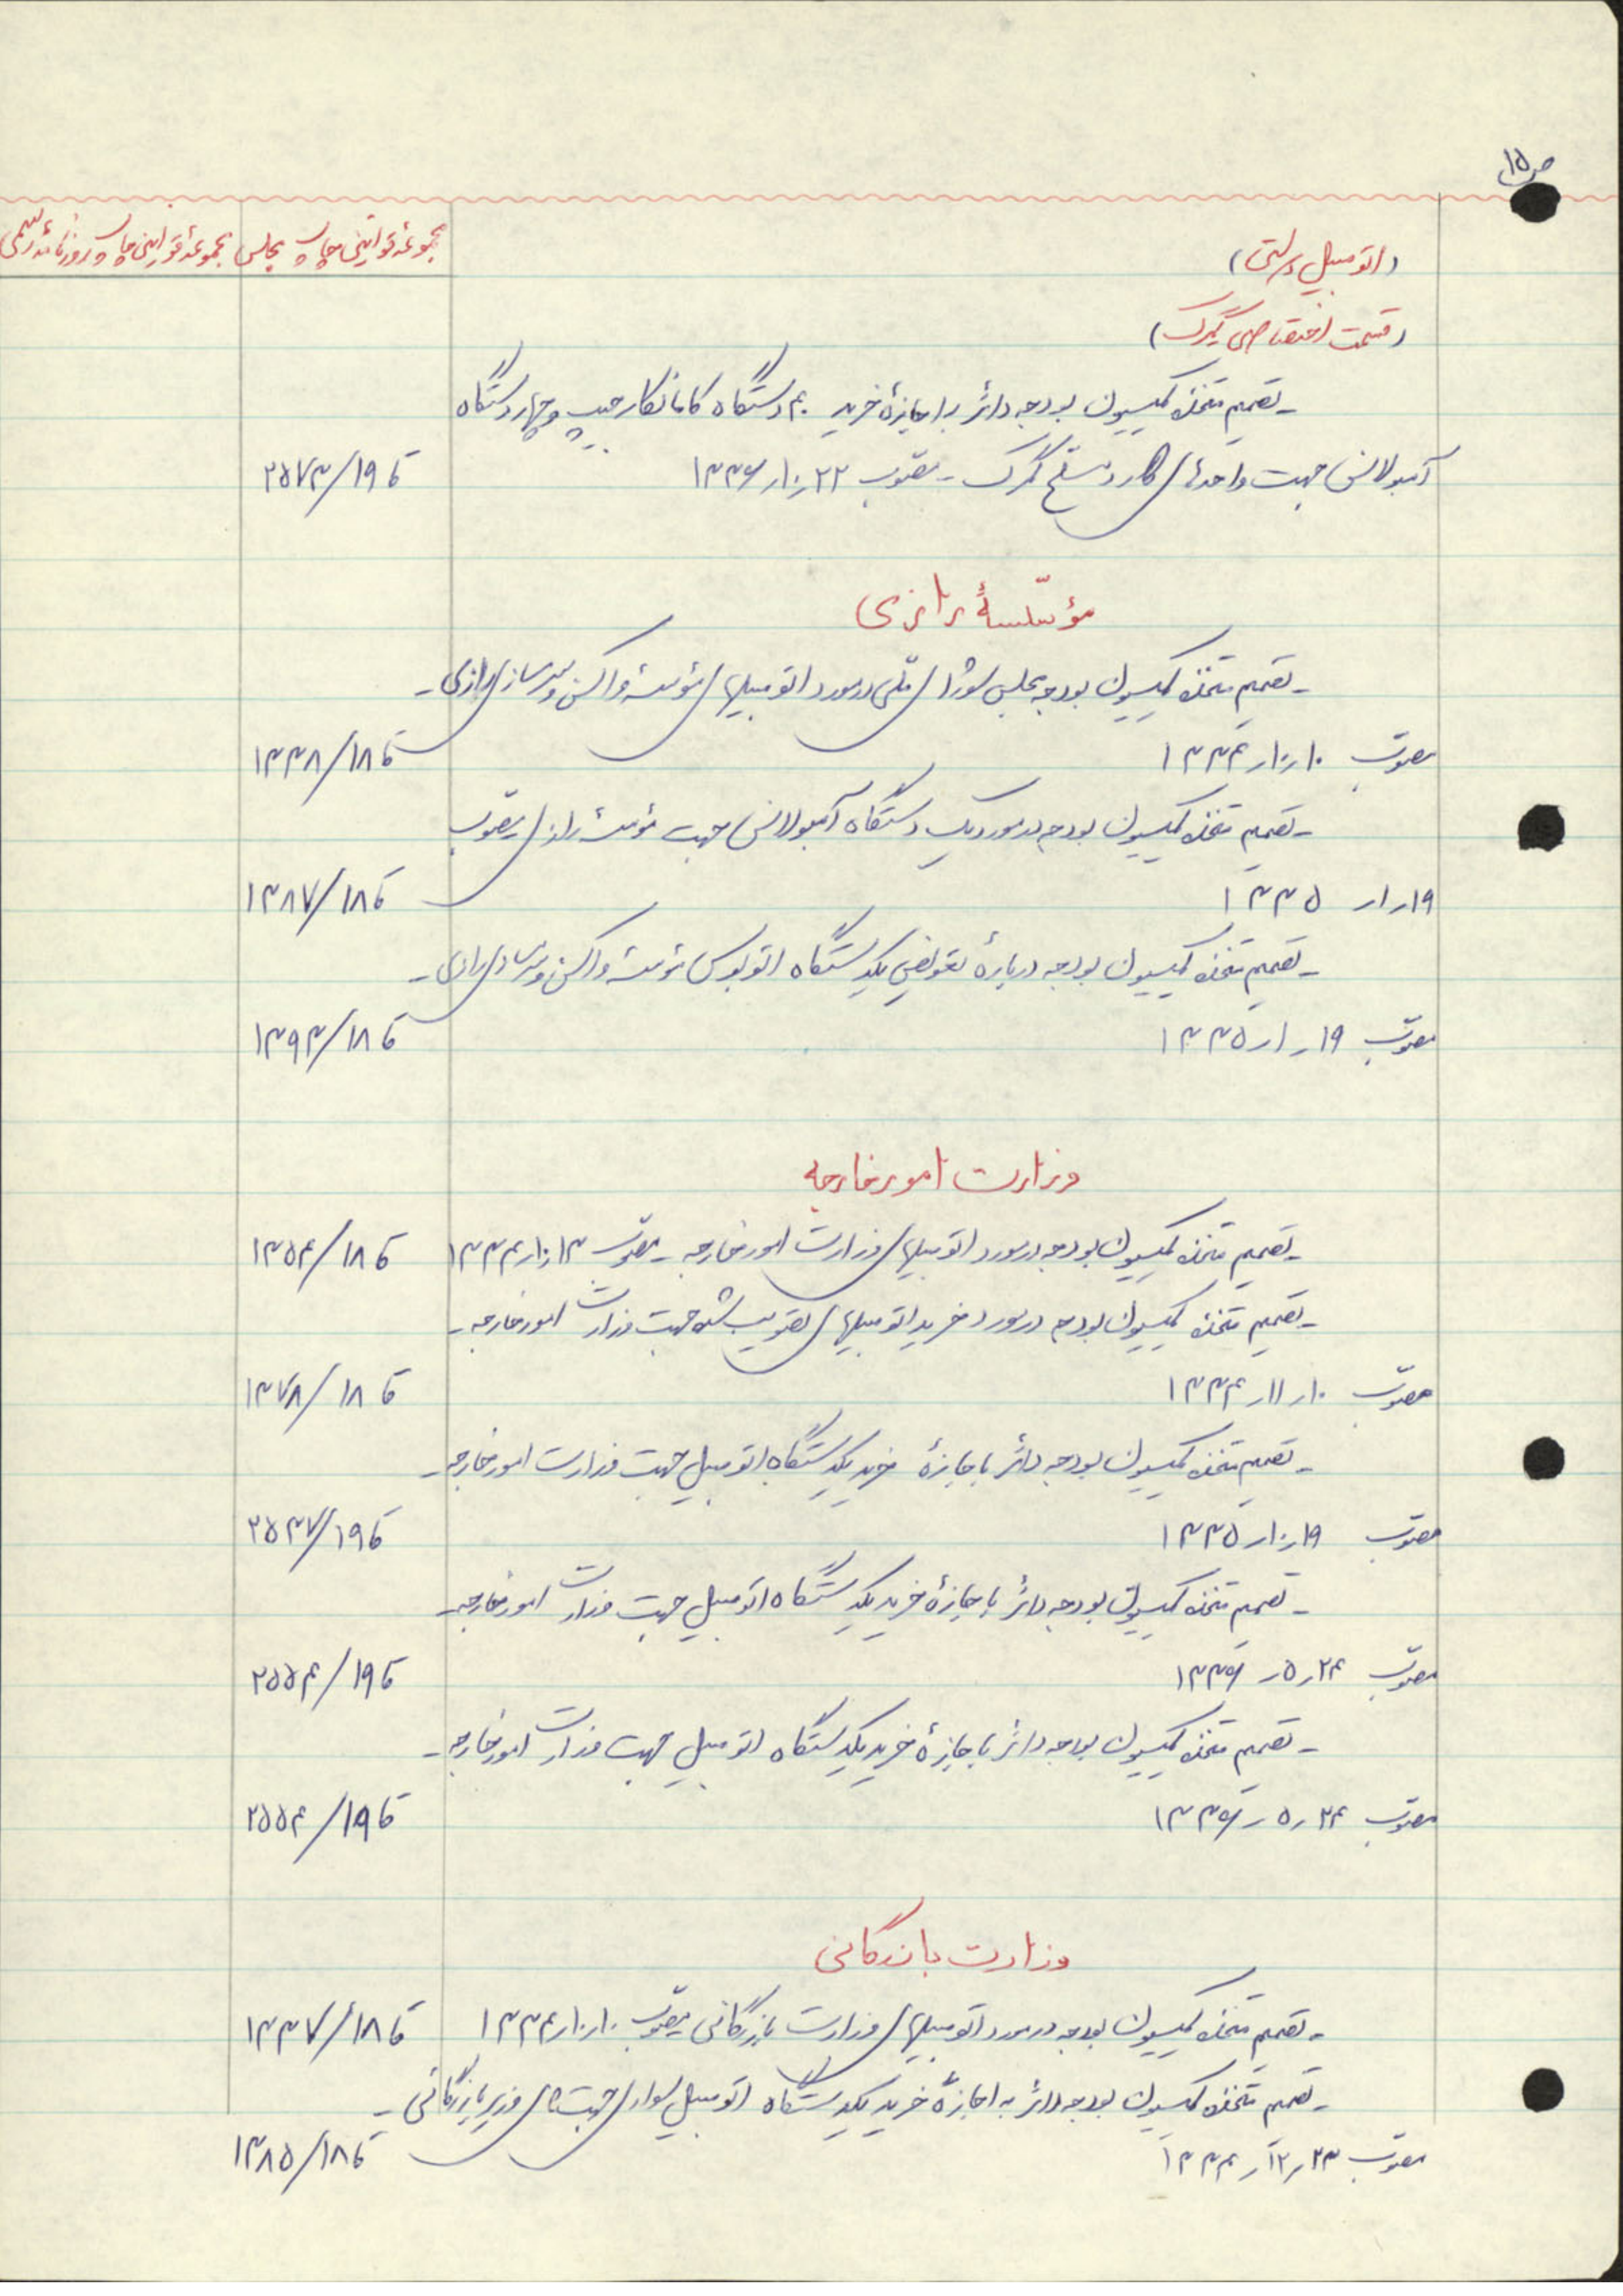 ص ۱۵
مجموعه قوانین چاپ مجلس
مجموعه قوانین چاپ روزنامه رسمی
(اتومبیل دولتی)
(قسمت اختصاصی گمرک)
ـ تصمیم متخذه کمیسیون بودجه دائر به اجازهٔ خرید ۴۰ دستگاه کامانکار جیپ و چهار دستگاه
آمبولانس جهت واحدهای گارد مسلح گمرک ـ مصوب ۲۲ر۱۰ر۱۳۳۶ ق ۱۹/۲۵۷۳
مؤسّسهٔ رازی
ـ تصمیم متخذه کمیسیون بودجه مجلس شورای ملّی در مورد اتومبیلهای مؤسسهٔ واکسن و سرم سازی رازی ـ
مصوّب ۱۰ر۱۰ر۱۳۳۴ ق ۱۸/۱۳۳۸
ـ تصمیم متخذه کمیسیون بودجه در مورد یک دستگاه آمبولانس جهت مؤسسهٔ رازی مصوّب
۱۹ر۱ر ۱۳۳۵ ق ۱۸/۱۳۸۷
ـ تصمیم متخذه کمیسیون بودجه دربارهٔ تعویض یکدستگاه اتوبوس مؤسسهٔ واکسن و سرم سازی رازی ـ
مصوّب ۱۹ر۱ر۱۳۳۵ ق ۱۸/۱۳۹۳
وزارت امور خارجه
ـ تصمیم متخذه کمیسیون بودجه در مورد اتومبیلهای وزارت امور خارجه ـ مصوّب ۱۳ر۱۰ر۱۳۳۴ ق ۱۸/۱۳۵۴
ـ تصمیم متخذه کمیسیون بودجه در مورد خرید اتومبیلهای تصویب شده جهت وزارت امور خارجه ـ
مصوّب ۱۰ر۱۱ر۱۳۳۴ ق ۱۸/۱۳۷۸
ـ تصمیم متخذه کمیسیون بودجه دائر باجازهٔ خرید یکدستگاه اتومبیل جهت وزارت امور خارجه ـ
مصوّب ۱۹ر۱۰ر۱۳۳۵ ق ۱۹/۲۵۳۷
ـ تصمیم متخذه کمیسیون بودجه دائر باجازهٔ خرید یکدستگاه اتومبیل جهت وزارت امور خارجه ـ
مصوّب ۲۴ر۵ر۱۳۳۶ ق ۱۹/۲۵۵۴
ـ تصمیم متخذه کمیسیون بودجه دائر باجازهٔ خرید یکدستگاه اتومبیل جهت وزارت امور خارجه ـ
مصوّب ۲۴ر۵ر۱۳۳۶ ق ۱۹/۲۵۵۴
وزارت بازرگانی
ـ تصمیم متخذه کمیسیون بودجه در مورد اتومبیلهای وزارت بازرگانی مصوّب ۱۰ر۱۰ر۱۳۳۴ ق ۱۸/۱۳۳۷
ـ تصمیم متخذه کمیسیون بودجه دائر به اجازهٔ خرید یکدستگاه اتومبیل سواری جهت وزیر بازرگانی ـ
مصوّب ۲۳ر۱۲ر۱۳۳۴ ق ۱۸/۱۳۸۵